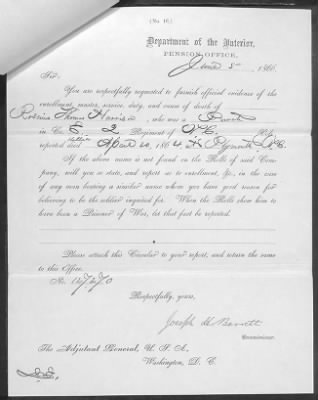 (No. 10.)
Department of the Interior,
PENSION OFFICE,
June 5, 186
Sir:
You are respectfully requested to furnish official evidence of the
enrollment, muster, service, duty, and cause of death of
Thomas Harrison, who was a Private
in Co. E, 2 Regiment of N.C.
reported died April 20, 1864 at Plymouth N.C.
If the above name is not found on the Rolls of said Com-
pany, will you so state, and report as to enrollment, &c., in the case
of any man bearing a similar name whom you have good reason for
believing to be the soldier inquired for. When the Rolls show him to
have been a Prisoner of War, let that fact be reported.
Please attach this Circular to your report, and return the same
to this Office.
No. 127270
Respectfully, yours,
Joseph H Barrett
Commissioner.
The Adjutant General, U. S. A.,
Washington, D. C.